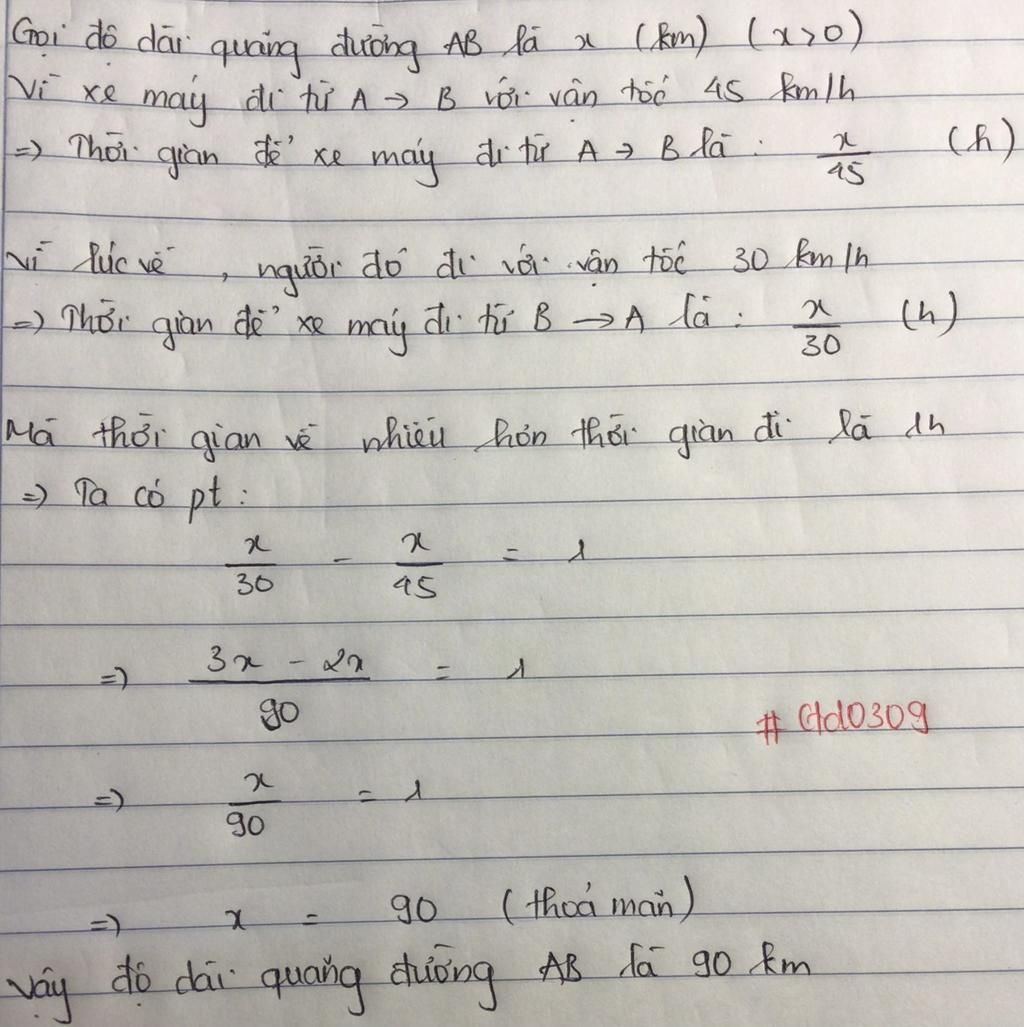 Gọi độ dài quãng đường AB là x (km) (x>0)
Vì xe máy đi từ A → B với vận tốc 45 km/h
=> Thời gian để xe máy đi từ A → B là : x/45 (h)
Vì lúc về , người đó đi với vận tốc 30 km/h
=> Thời gian để xe máy đi từ B → A là : x/30 (h)
Mà thời gian về nhiều hơn thời gian đi là 1h
=> Ta có pt :
x/30 - x/45 = 1
=> (3x - 2x)/90 = 1
# Gtd0309
=> x/90 = 1
=> x = 90 (thoả mãn)
Vậy độ dài quãng đường AB là 90 km